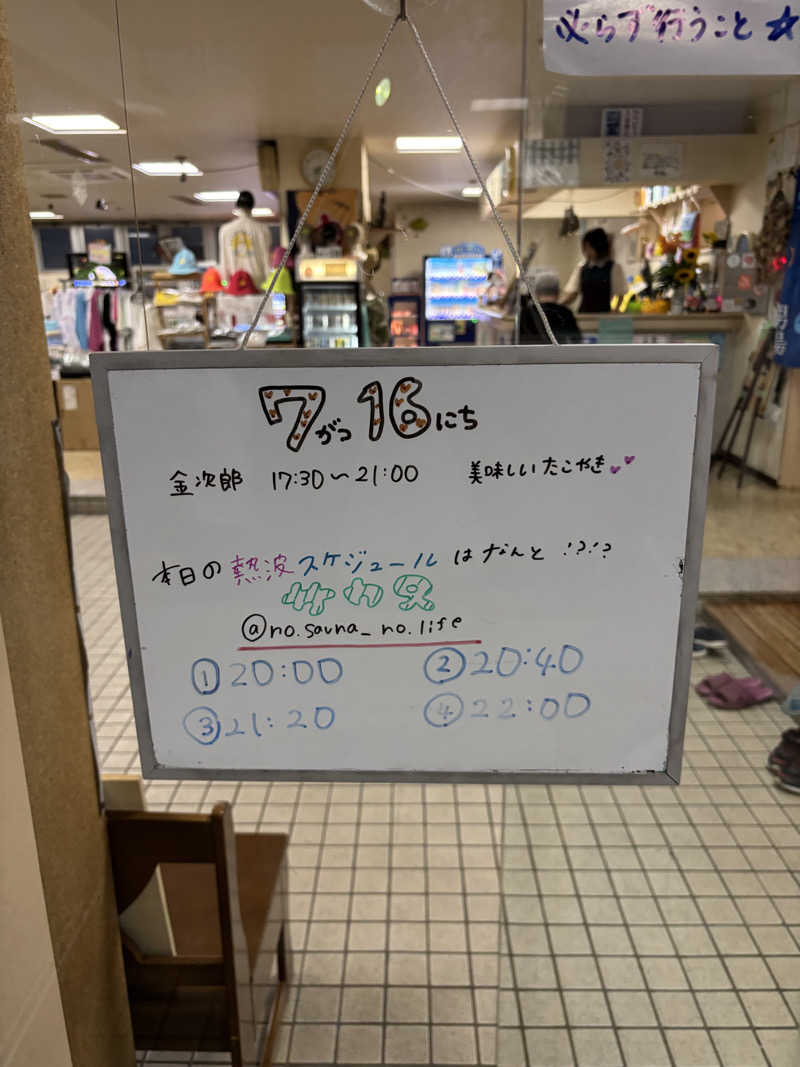 必らず行うこと★
7がつ16にち
金次郎 17:30〜21:00 美味しいたこやき
本日の熱波スケジュールはなんと!?!?
@no.sauna_no.life
①20:00 ②20:40
③21:20 ④22:00